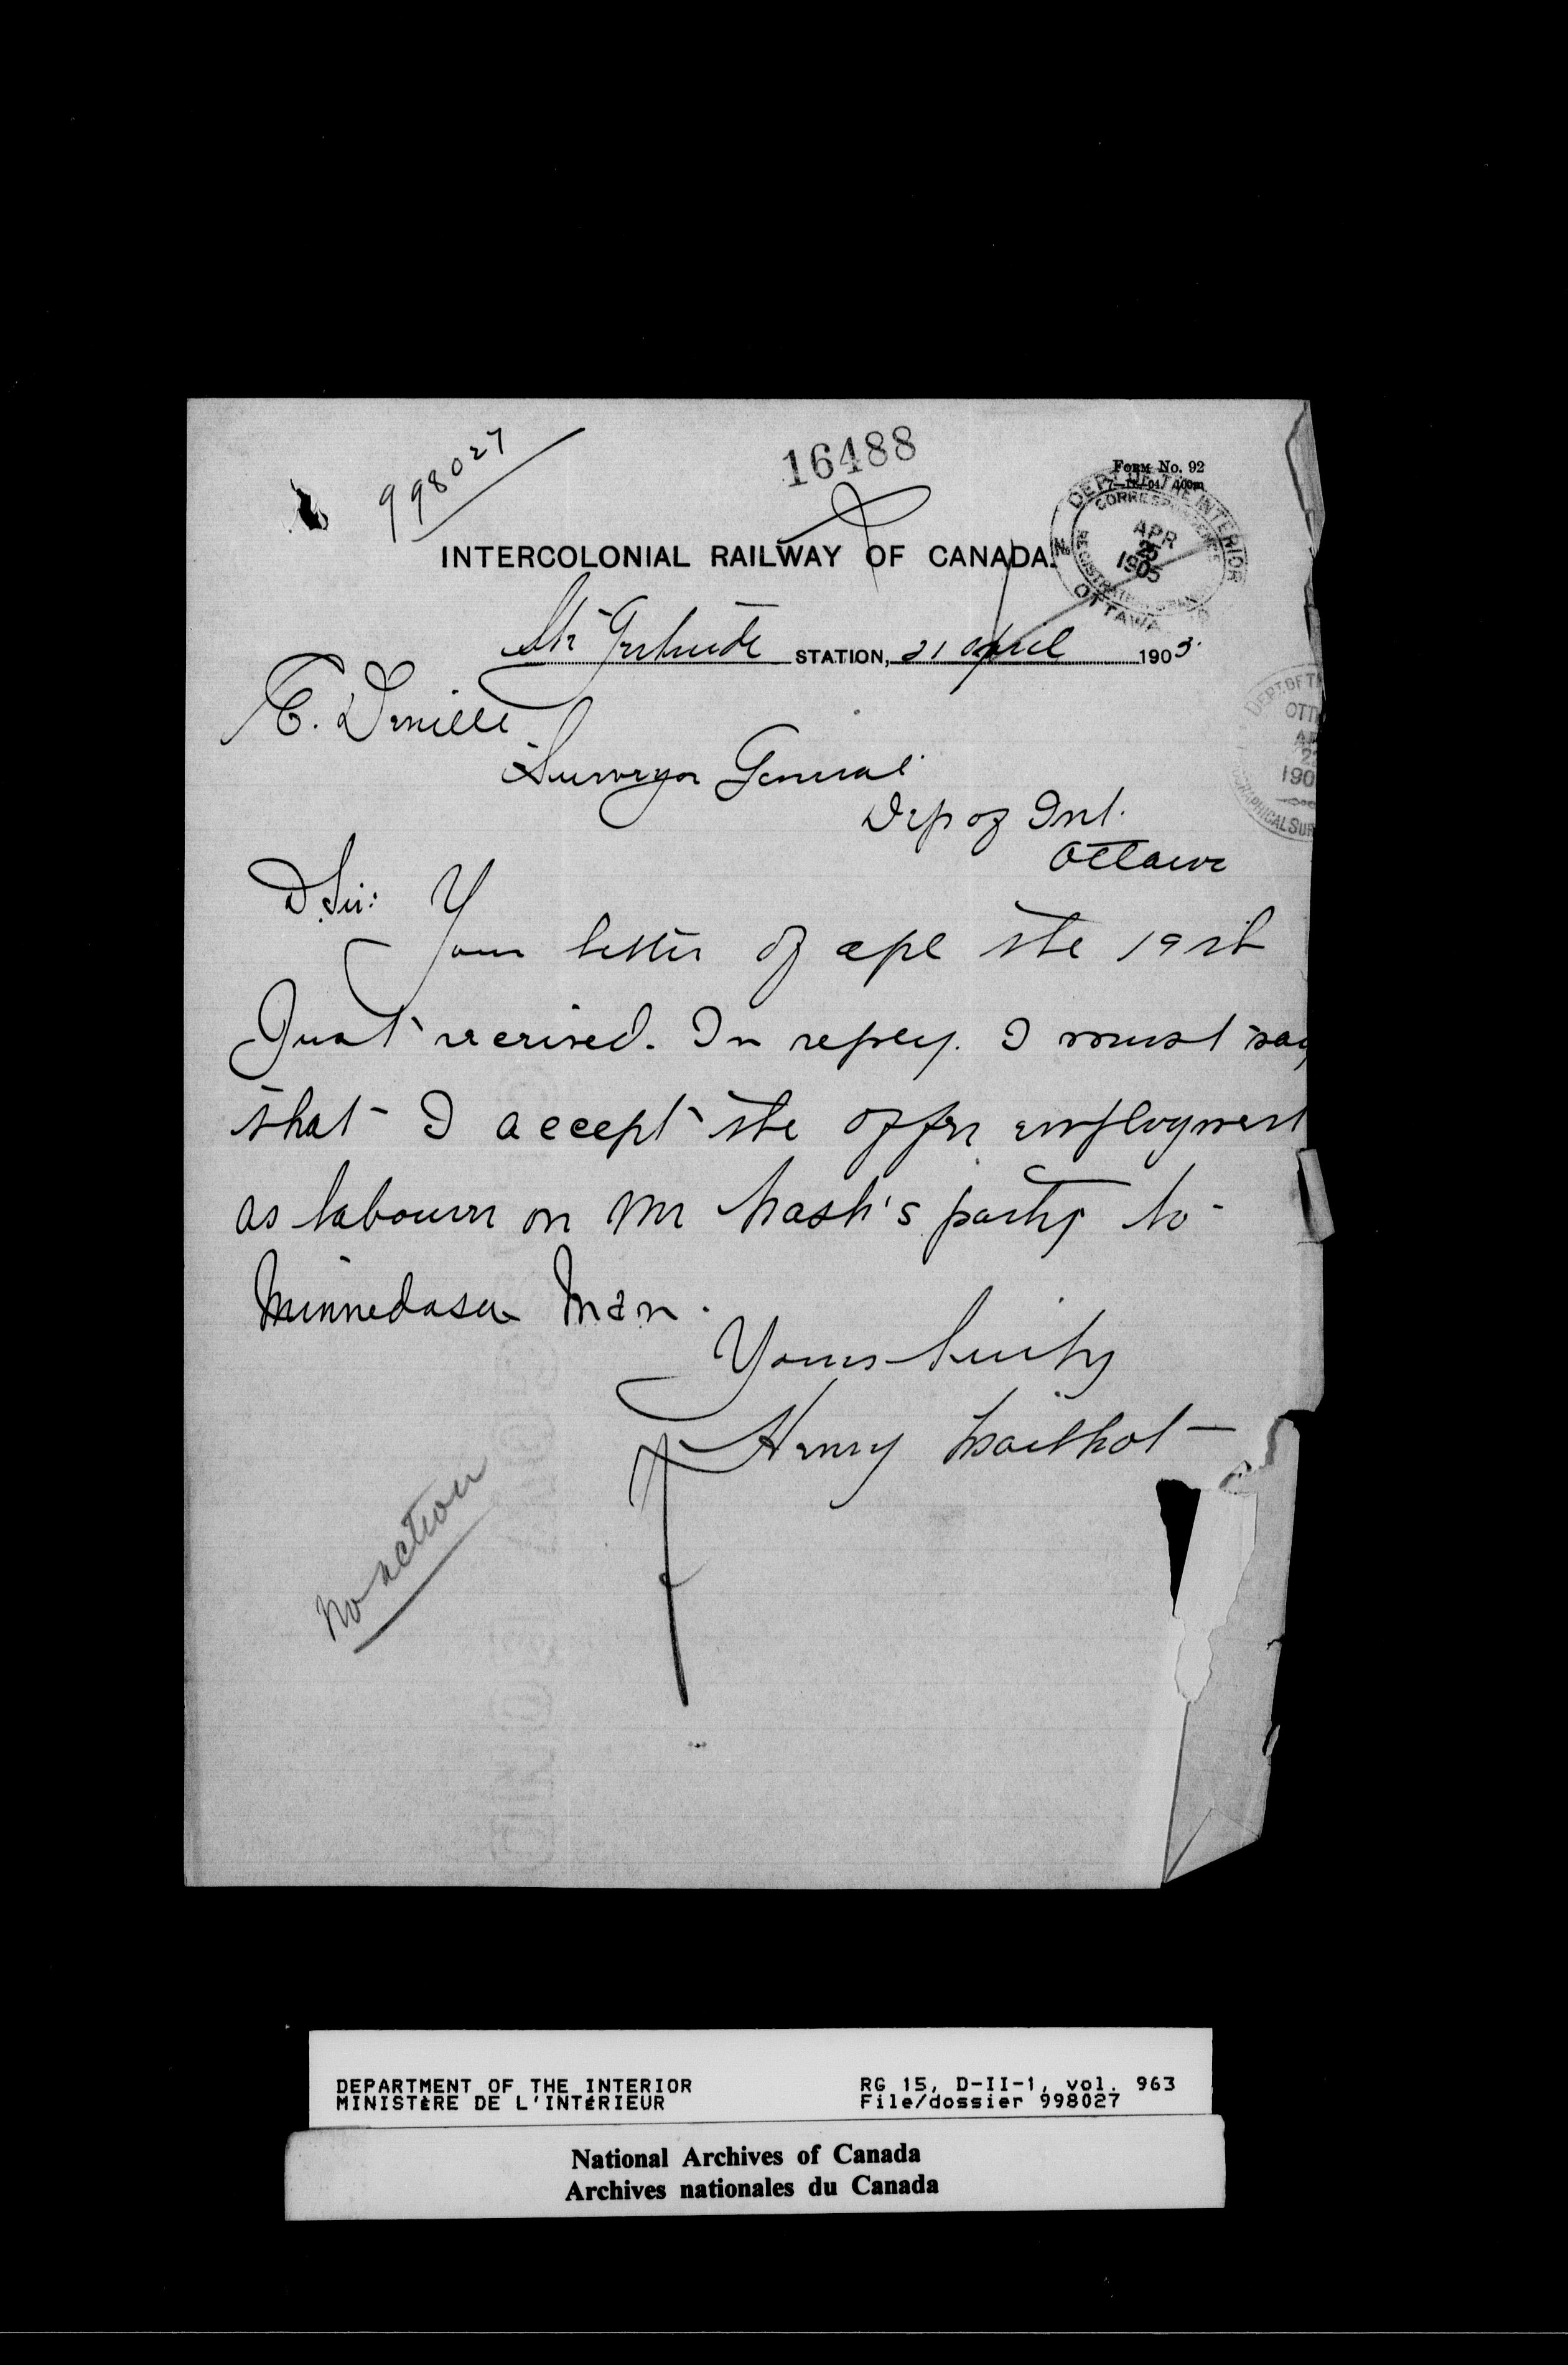 998027
16488
FORM No. 92
INTERCOLONIAL RAILWAY OF CANADA.
DEPT. OF THE INTERIOR
CORRESPONDENCE
APR
25
1905
OTTAWA
Ste Gertrude STATION, 21 April 1905
E. Deville
Surveyor General
Dep of Int.
Ottawa
DEPT. OF T
OTT
AP
190
GRAPHICAL SUR
D Sir:
Your letter of apl the 19th
Just received. In reply. I must say
that I accept the offer employment
as labourer on Mr Nash's party to
Minnedosa Man.
Yours truly
Henry
No action
DEPARTMENT OF THE INTERIOR
MINISTÈRE DE L'INTÉRIEUR
RG 15, D-II-1, vol. 963
File/dossier 998027
National Archives of Canada
Archives nationales du Canada